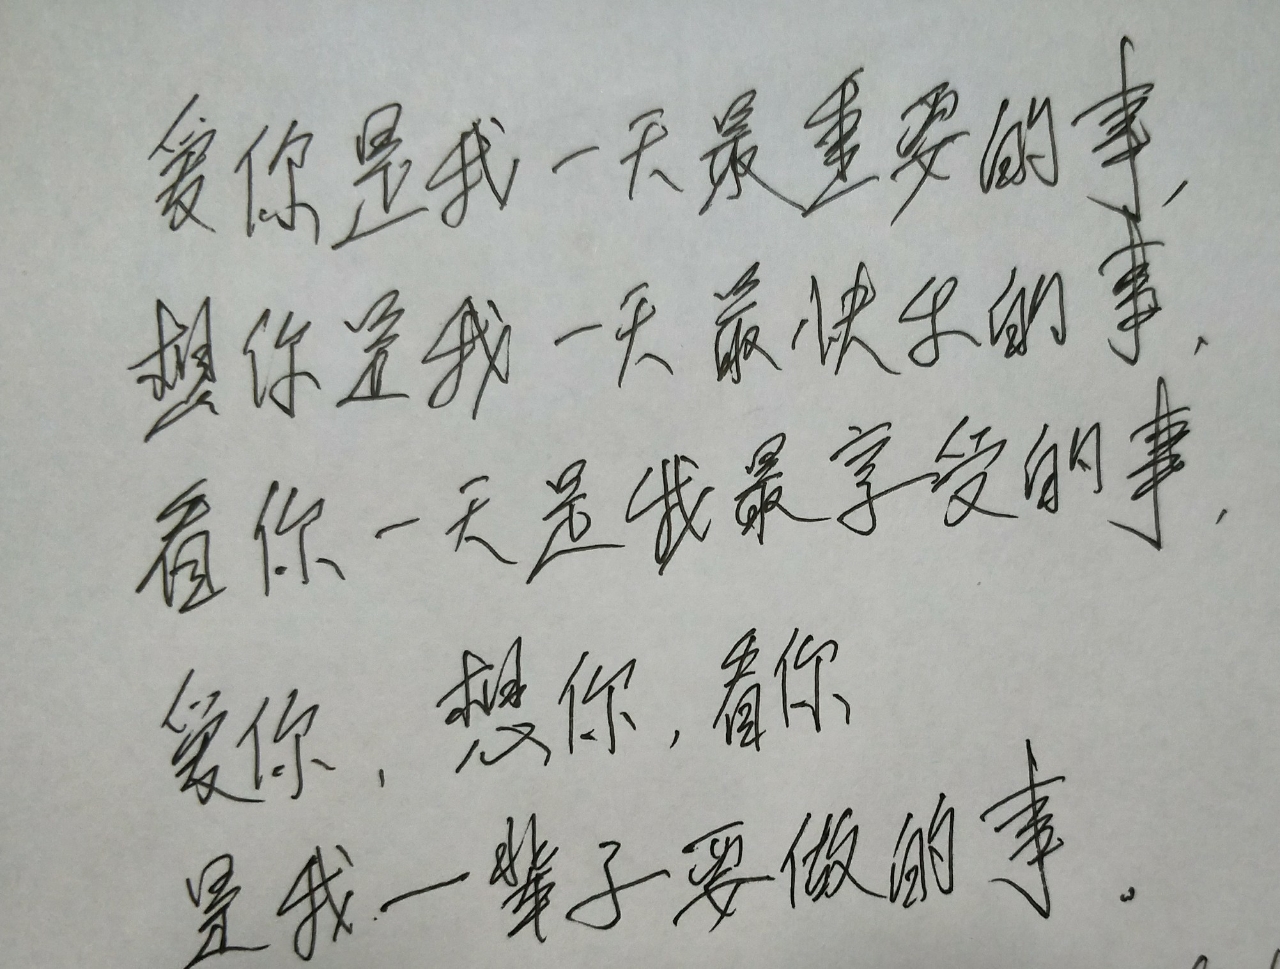 爱你是我一天最重要的事,
想你是我一天最快乐的事,
看你一天是我最享受的事,
爱你,想你,看你
是我一辈子要做的事。